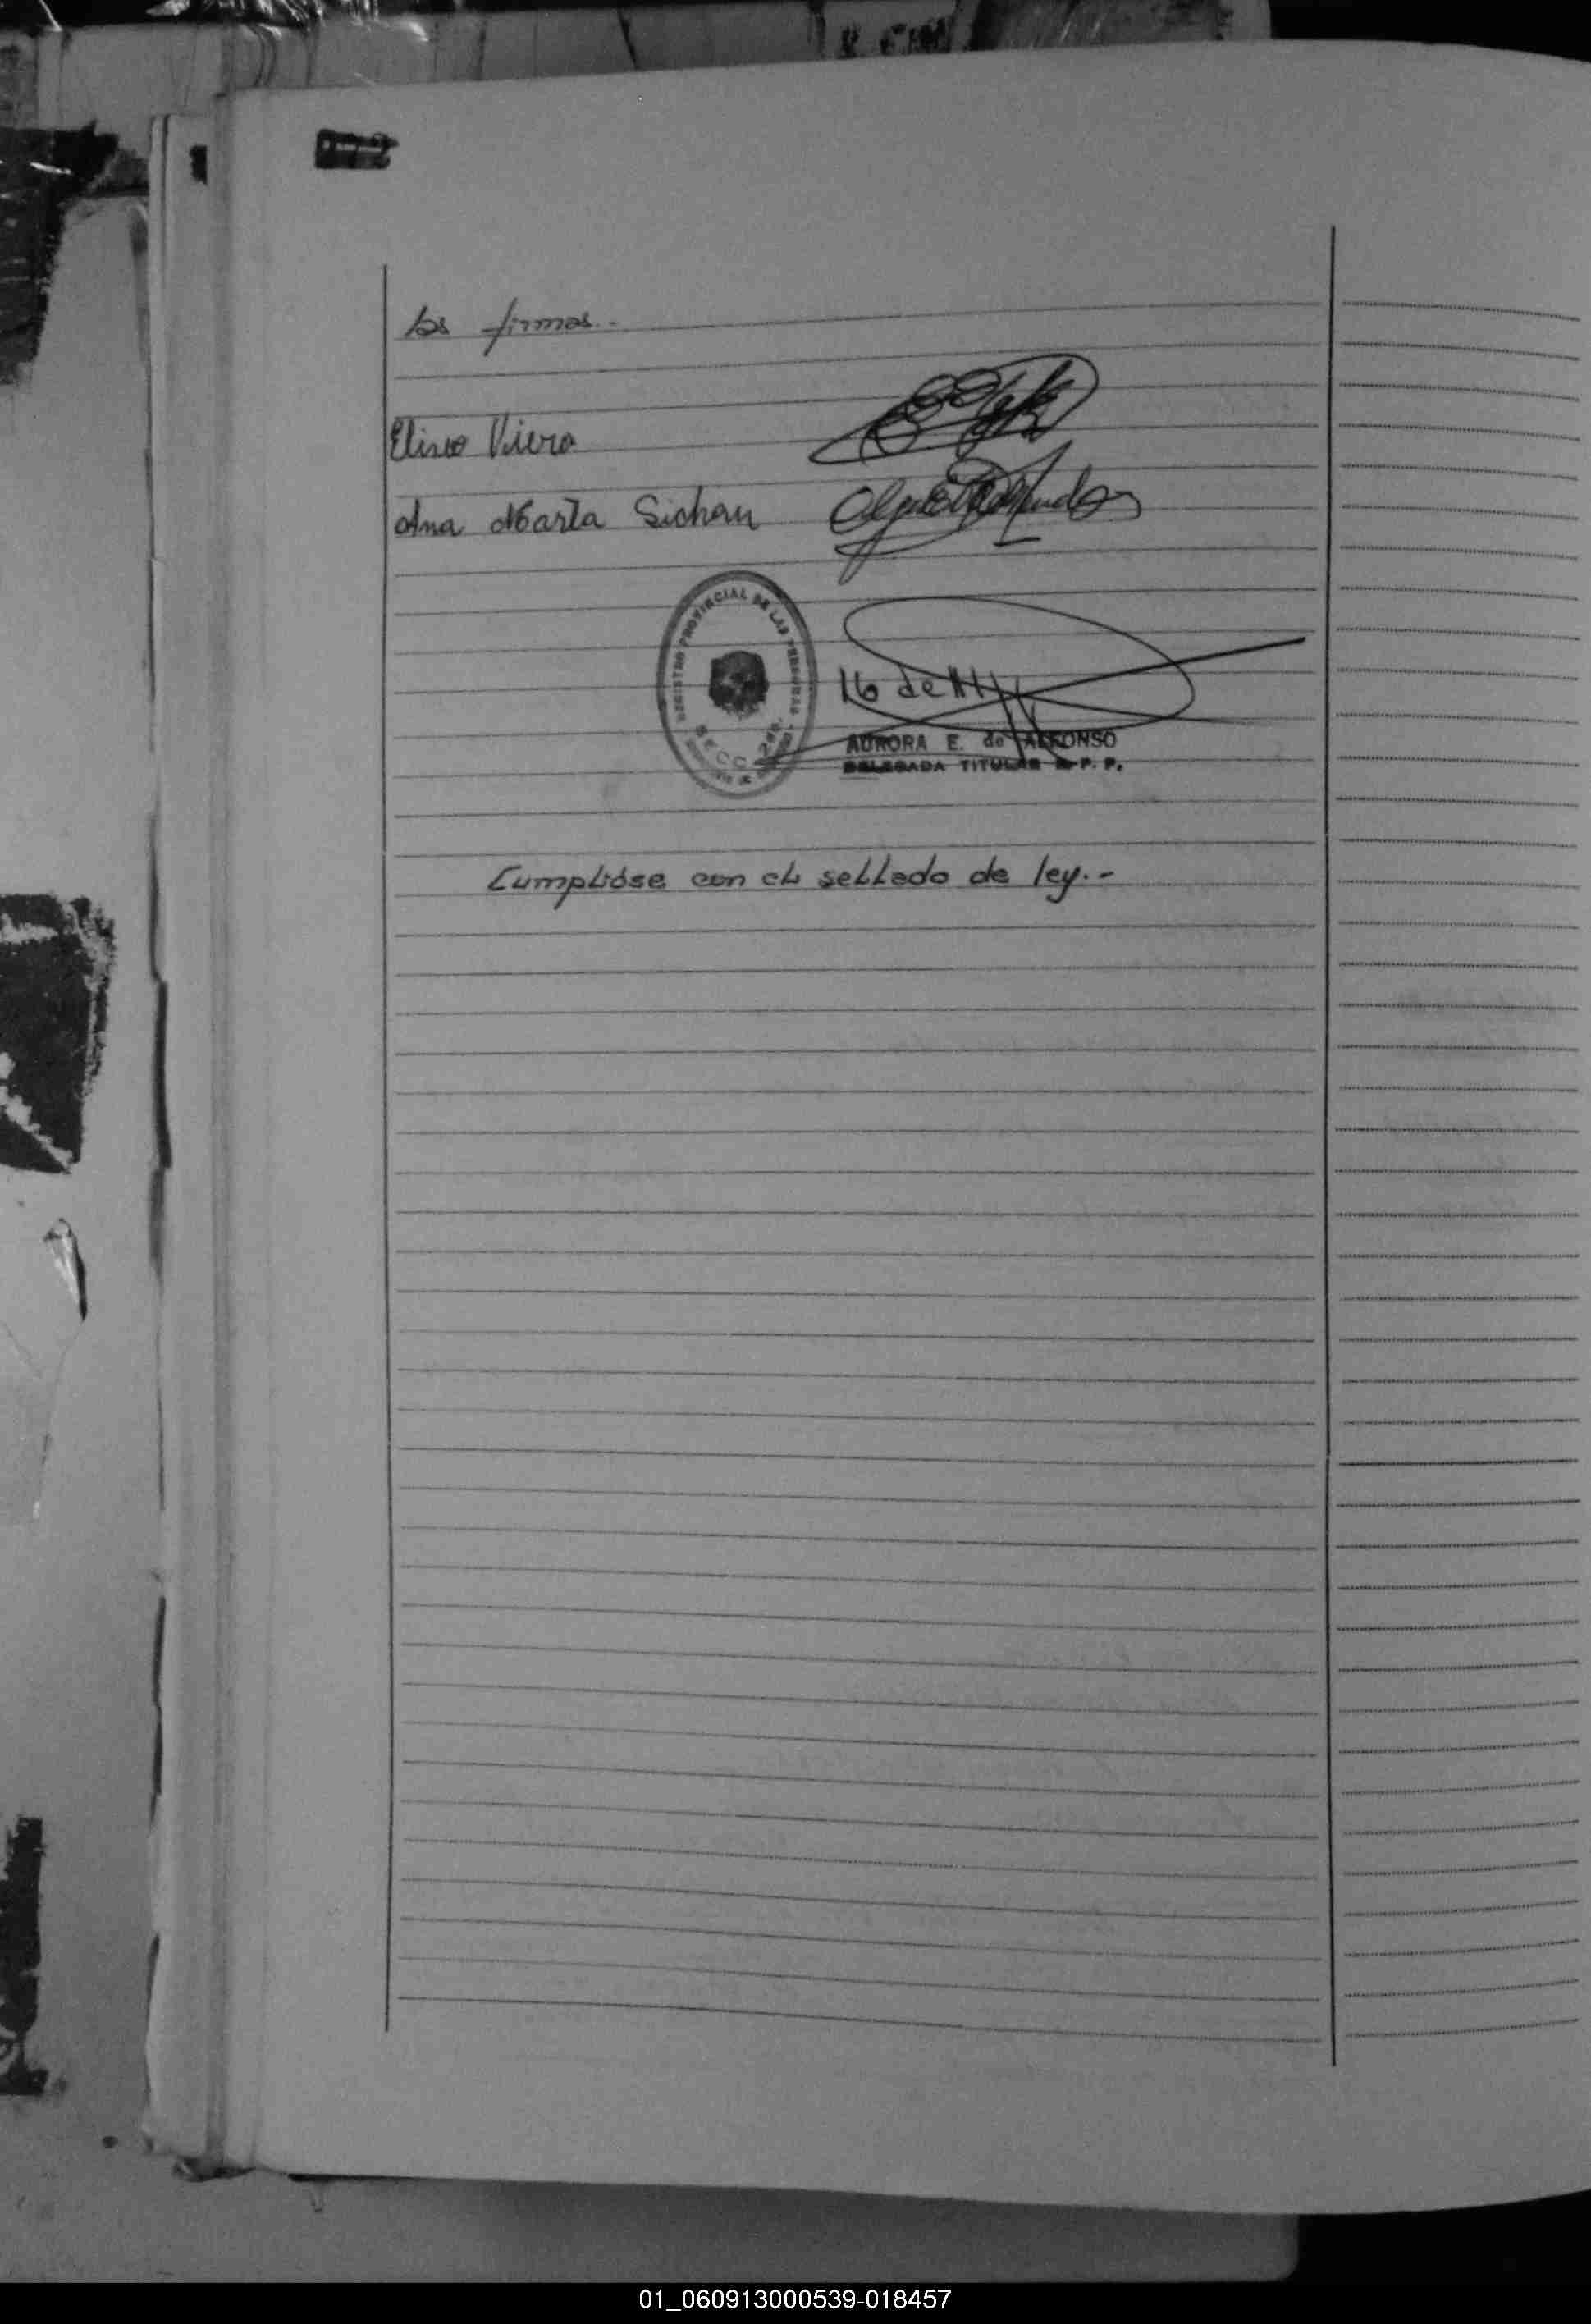 las firmas.-
Eliseo Viero
Ana Marta Sichau
REGISTRO PROVINCIAL DE LAS PERSONAS
SECC. 2da.
16 de
AURORA E. de ALFONSO
DELEGADA TITULAR R. P. P.
Cumplióse con el sellado de ley.-
01_060913000539-018457